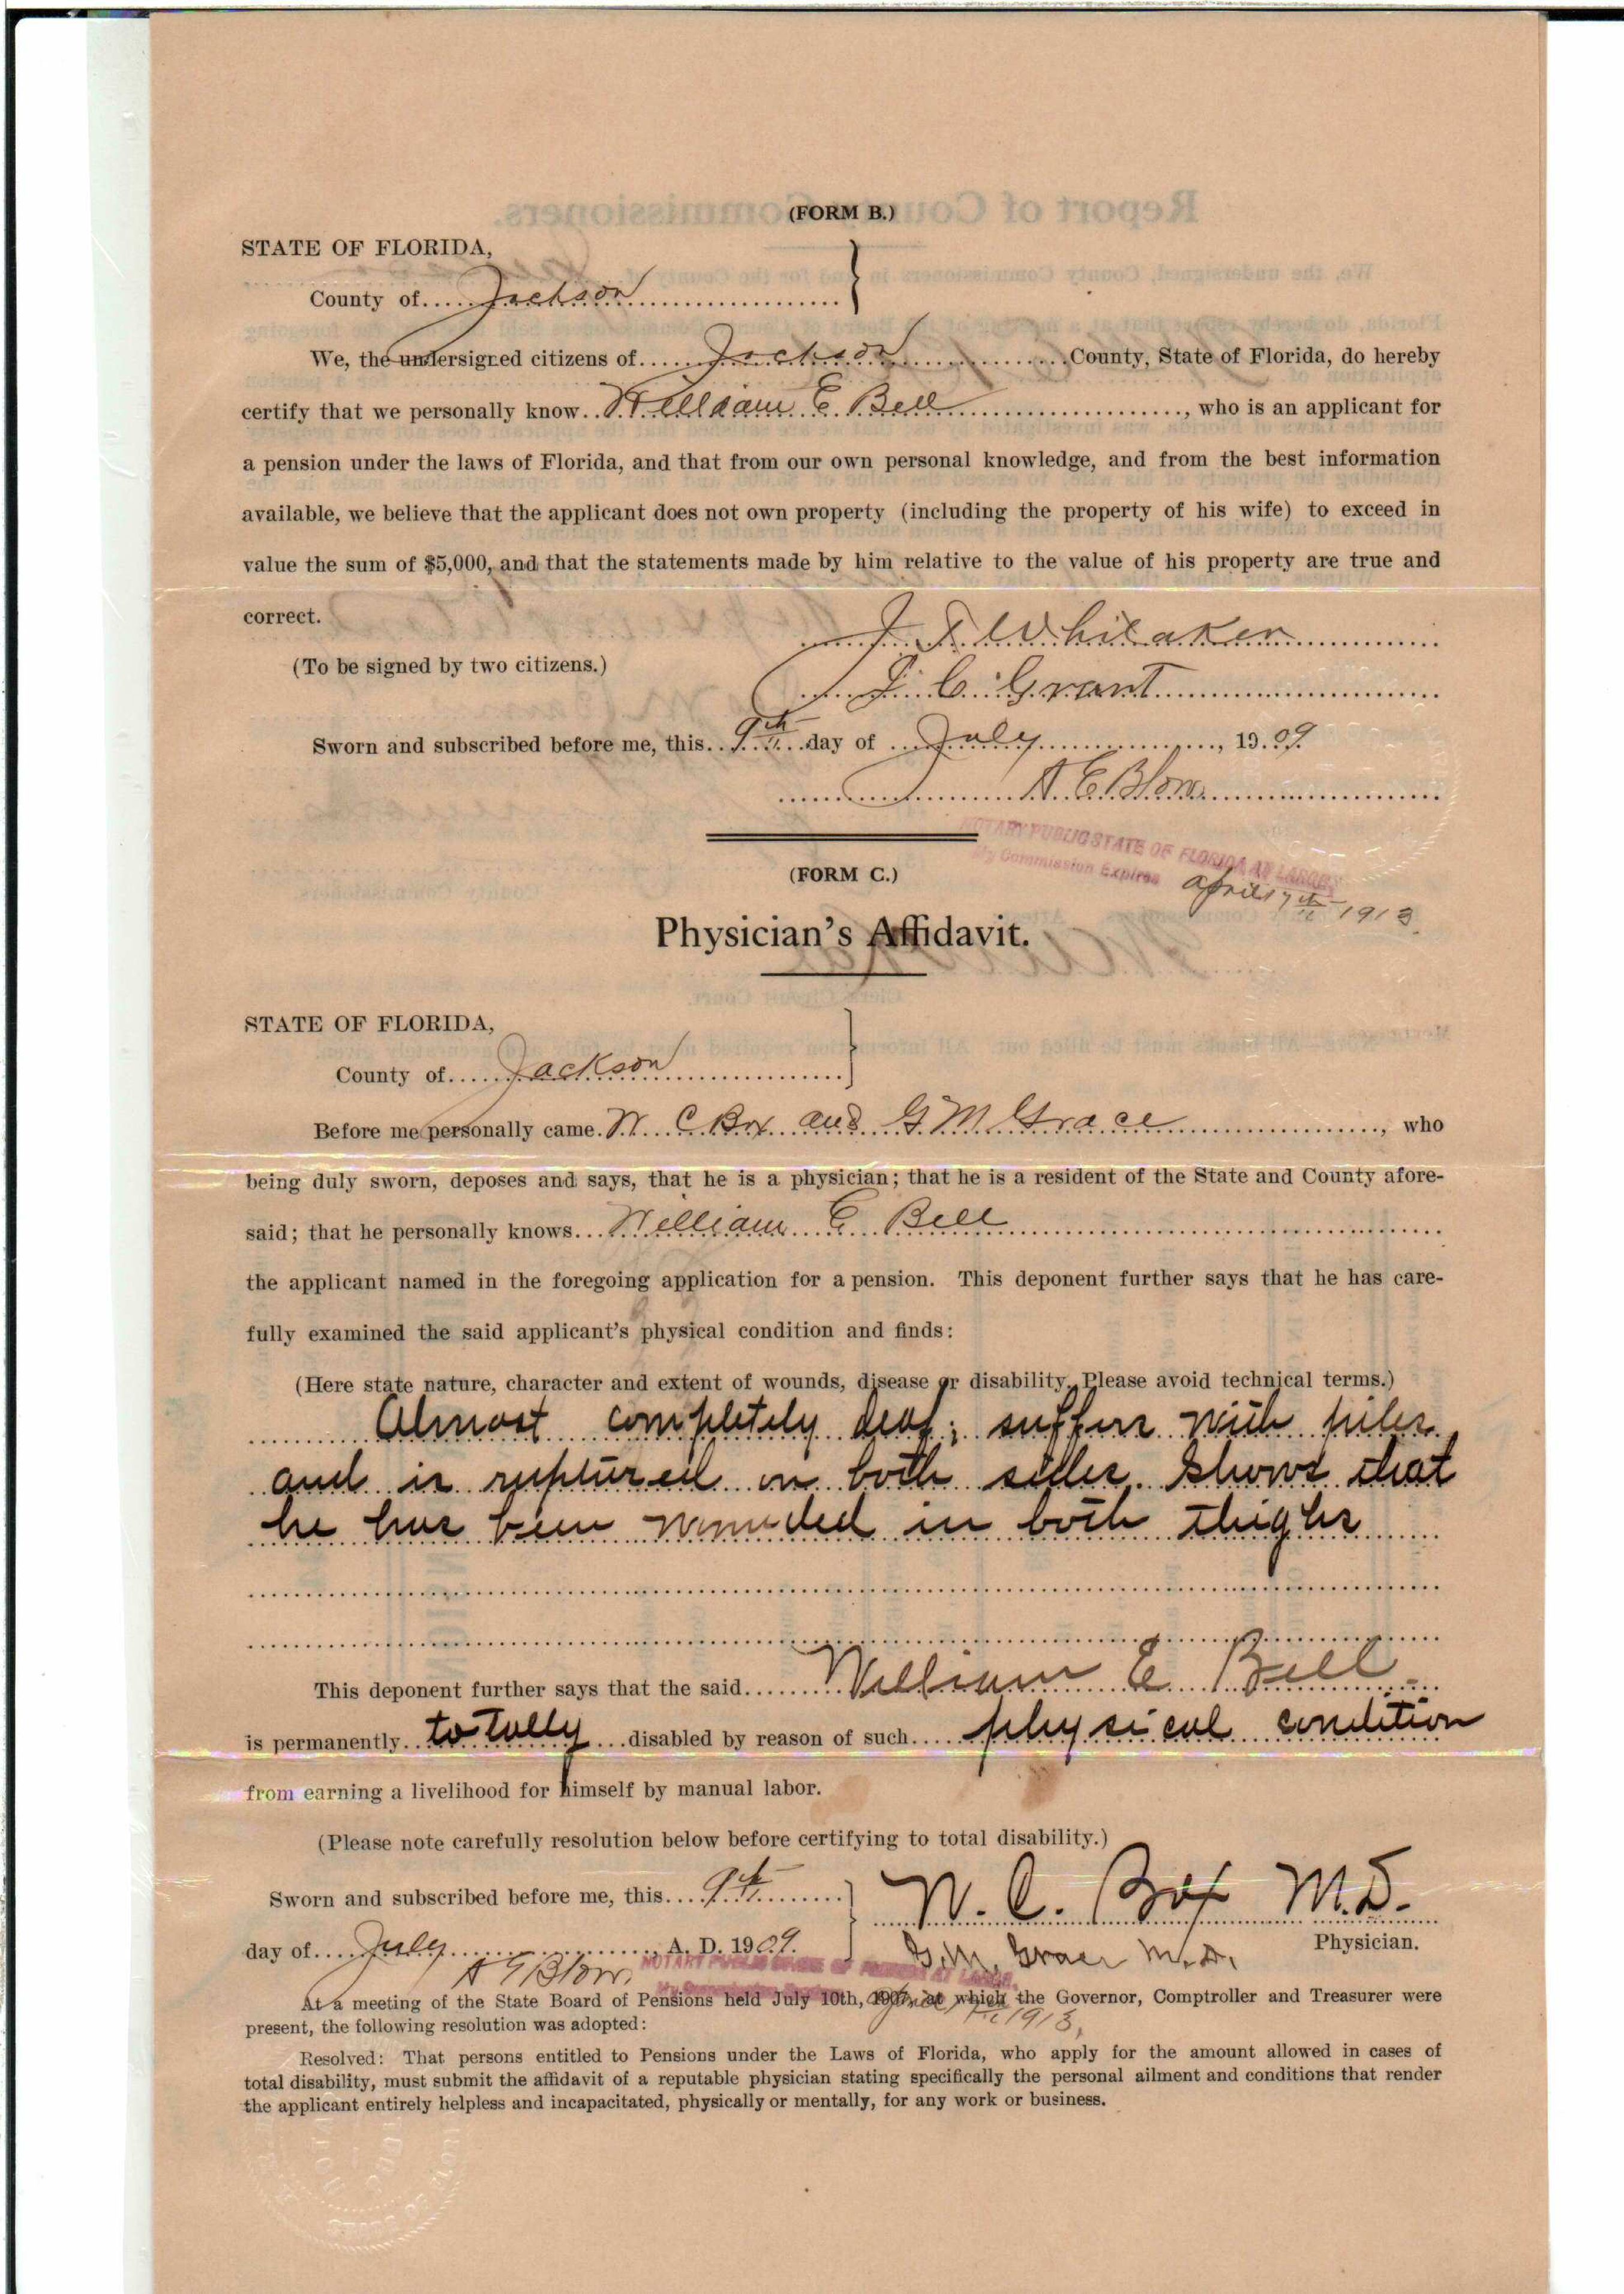 (FORM B.)
STATE OF FLORIDA,
County of Jackson
We, the undersigned citizens of Jackson County, State of Florida, do hereby
certify that we personally know William E. Bell, who is an applicant for
a pension under the laws of Florida, and that from our own personal knowledge, and from the best information
available, we believe that the applicant does not own property (including the property of his wife) to exceed in
value the sum of $5,000, and that the statements made by him relative to the value of his property are true and
correct.
J. T. Whitaker
(To be signed by two citizens.)
J. C. Grant
Sworn and subscribed before me, this 9th day of July, 1909.
A E Blow
NOTARY PUBLIC STATE OF FLORIDA AT LARGE
My Commission Expires April 17th 1913
(FORM C.)
Physician's Affidavit.
STATE OF FLORIDA,
County of Jackson
Before me personally came N. C Box and G M Grace, who
being duly sworn, deposes and says, that he is a physician; that he is a resident of the State and County afore-
said; that he personally knows William E Bell
the applicant named in the foregoing application for a pension. This deponent further says that he has care-
fully examined the said applicant's physical condition and finds:
(Here state nature, character and extent of wounds, disease or disability. Please avoid technical terms.)
Almost completely deaf; suffers with piles
and is ruptured on both sides. Shows that
he has been wounded in both thighs
This deponent further says that the said William E. Bell
is permanently totally disabled by reason of such physical condition
from earning a livelihood for himself by manual labor.
(Please note carefully resolution below before certifying to total disability.)
Sworn and subscribed before me, this 9th
N. C. Box M.D.
day of July, A. D. 1909.
Physician.
G. M. Grace M.D.
A E Blow
NOTARY PUBLIC STATE OF FLORIDA AT LARGE
At a meeting of the State Board of Pensions held July 10th, at which the Governor, Comptroller and Treasurer were
present, the following resolution was adopted:
Resolved: That persons entitled to Pensions under the Laws of Florida, who apply for the amount allowed in cases of
total disability, must submit the affidavit of a reputable physician stating specifically the personal ailment and conditions that render
the applicant entirely helpless and incapacitated, physically or mentally, for any work or business.